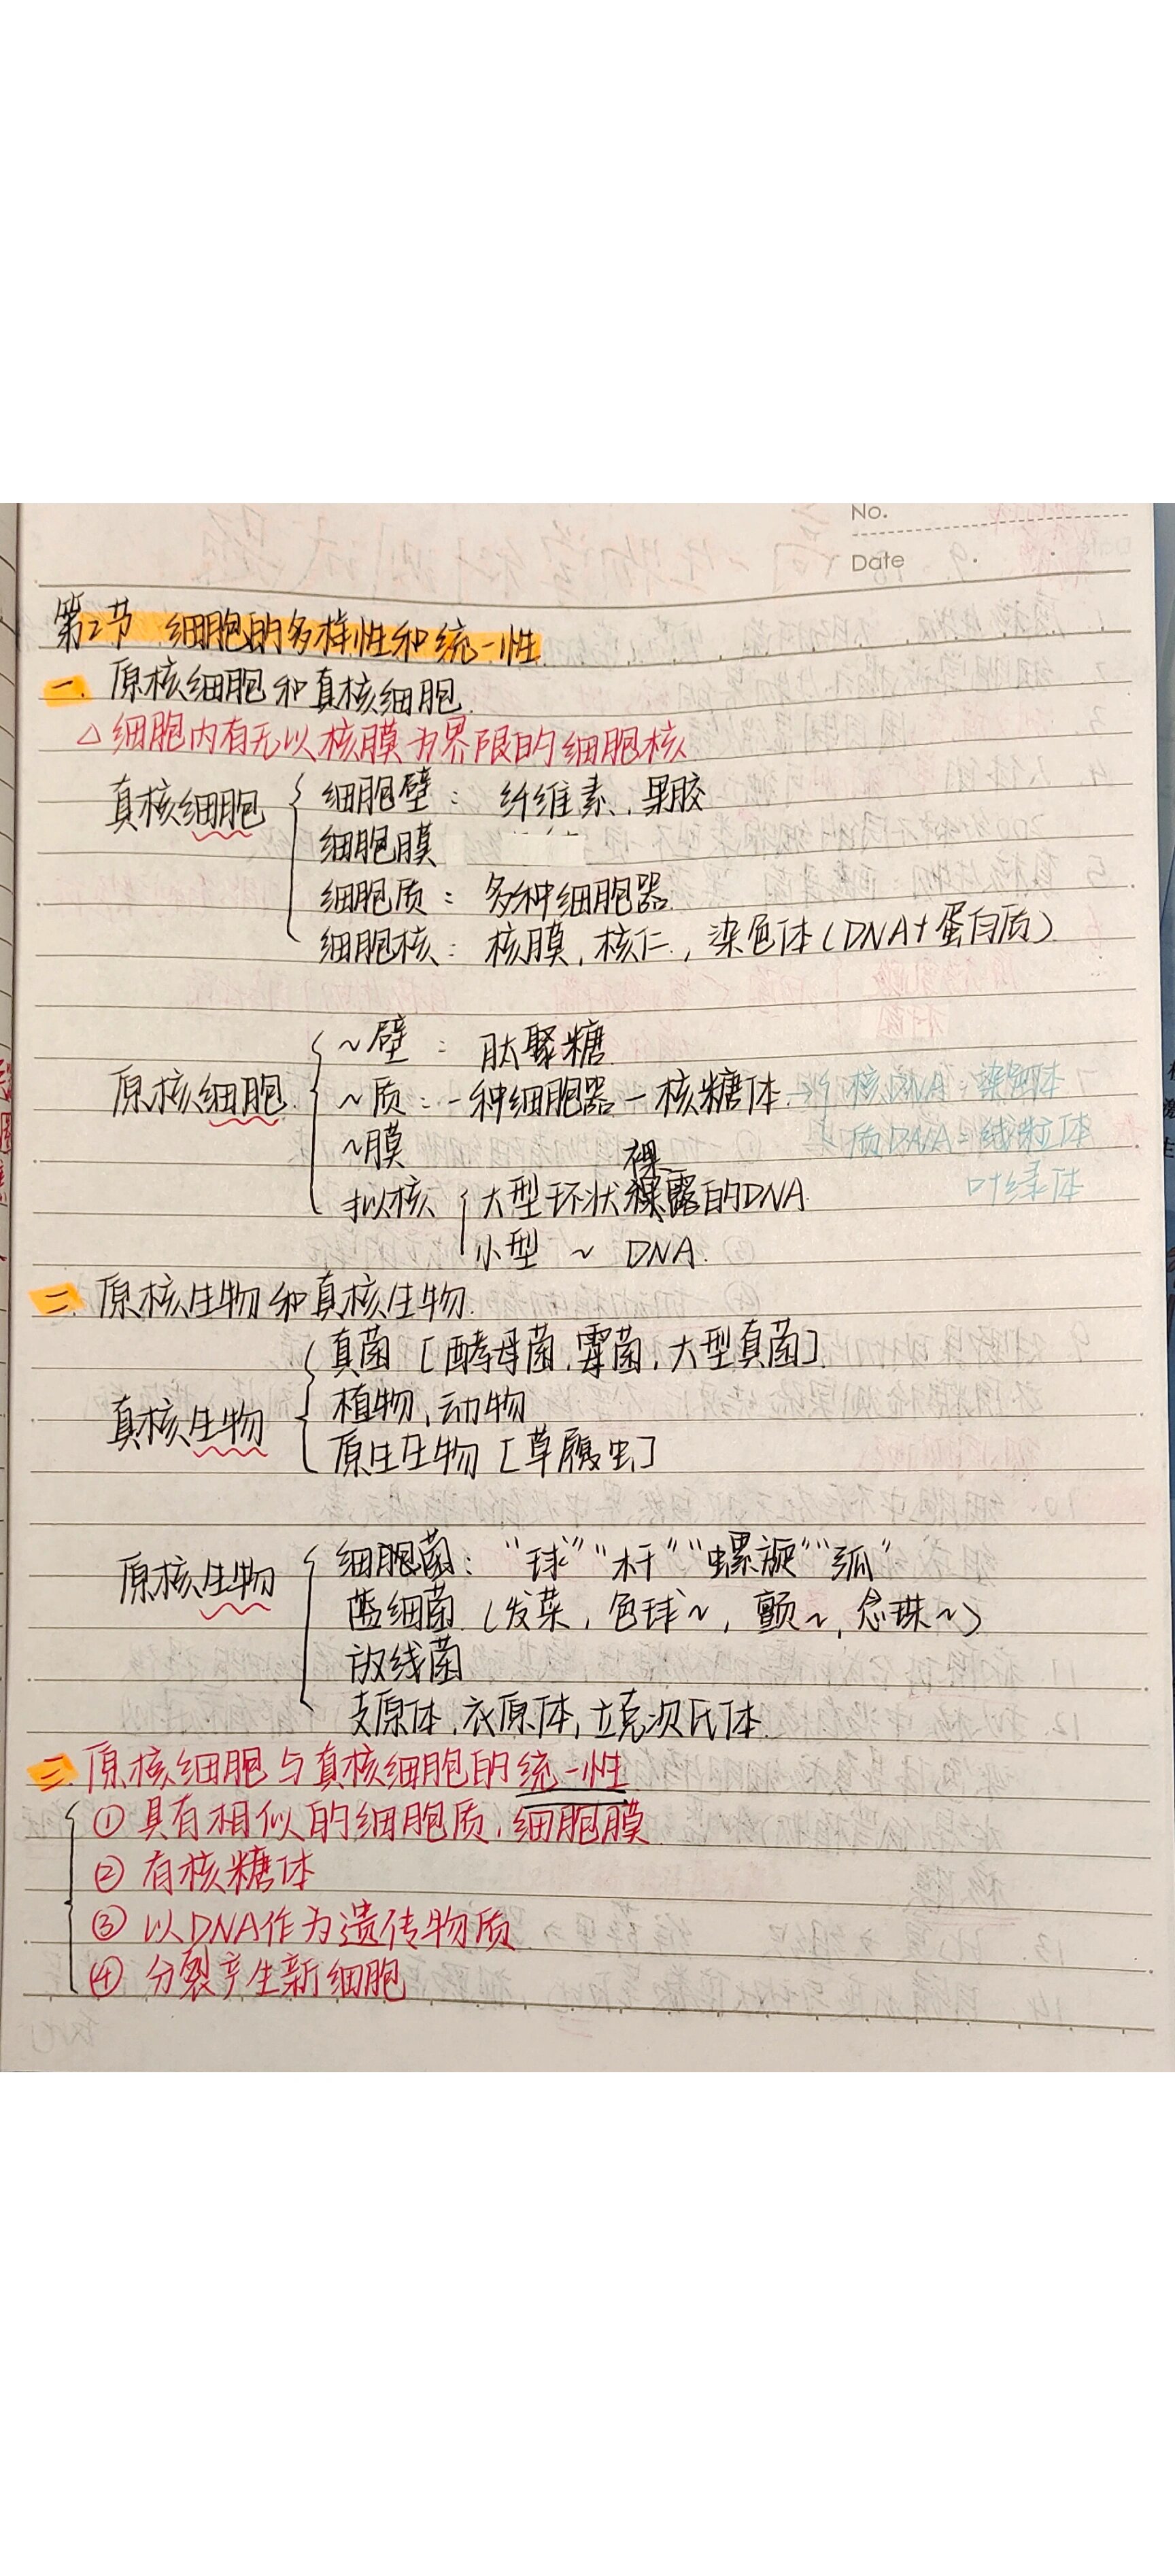 No.
Date
第2节 细胞的多样性和统一性
一. 原核细胞和真核细胞.
△细胞内有无以核膜为界限的细胞核
真核细胞
细胞壁: 纤维素、果胶
细胞膜
细胞质: 多种细胞器
细胞核: 核膜, 核仁, 染色体(DNA+蛋白质)
原核细胞
~壁: 肽聚糖
~质: 一种细胞器-核糖体. 核DNA: 染色体
~膜 质DNA: 线粒体
叶绿体
裸
拟核 大型环状露的DNA
小型 ~ DNA.
二. 原核生物和真核生物.
真核生物
真菌 [酵母菌, 霉菌, 大型真菌]
植物, 动物
原生生物 [草履虫]
原核生物
细胞菌: “球”“杆”“螺旋”“弧”
蓝细菌 (发菜, 色球~, 颤~, 念珠~)
放线菌
支原体, 衣原体, 立克次氏体.
三. 原核细胞与真核细胞的统一性
① 具有相似的细胞质, 细胞膜
② 有核糖体
③ 以DNA作为遗传物质
④ 分裂产生新细胞